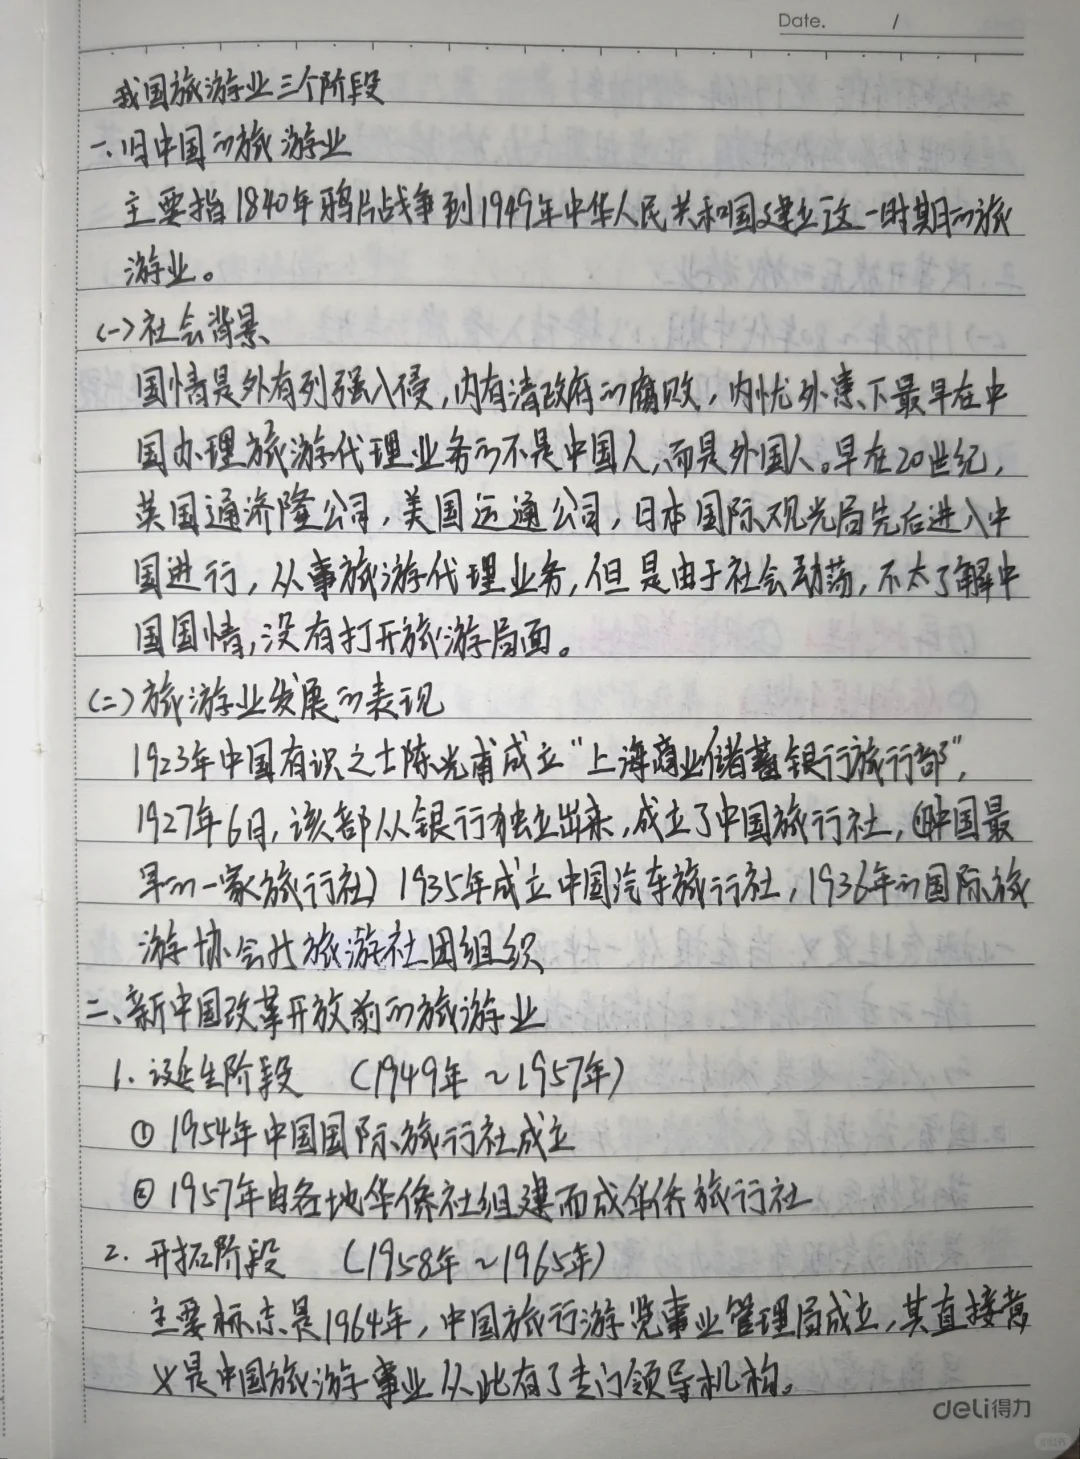 Date. /
我国旅游业三个阶段
一、旧中国的旅游业
主要指1840年鸦片战争到1949年中华人民共和国建立这一时期的旅
游业。
(一)社会背景
国情是外有列强入侵,内有清政府的腐败,内忧外患下最早在中
国办理旅游代理业务的不是中国人,而是外国人。早在20世纪,
英国通济隆公司,美国运通公司,日本国际观光局先后进入中
国进行,从事旅游代理业务,但是由于社会动荡,不太了解中
国国情,没有打开旅游局面。
(二)旅游业发展的表现
1923年中国有识之士陈光甫成立“上海商业储蓄银行旅行部”,
1927年6月,该部从银行独立出来,成立了中国旅行社,(中国最
早的一家旅行社)1935年成立中国汽车旅行社,1936年的国际旅
游协会此旅游社团组织
二、新中国改革开放前的旅游业
1.诞生阶段 (1949年~1957年)
①1954年中国国际旅行社成立
②1957年由各地华侨社组建而成华侨旅行社
2.开拓阶段 (1958年~1965年)
主要标志是1964年,中国旅行游览事业管理局成立,其直接意
义是中国旅游事业从此有了专门领导机构。
deli得力
小红书